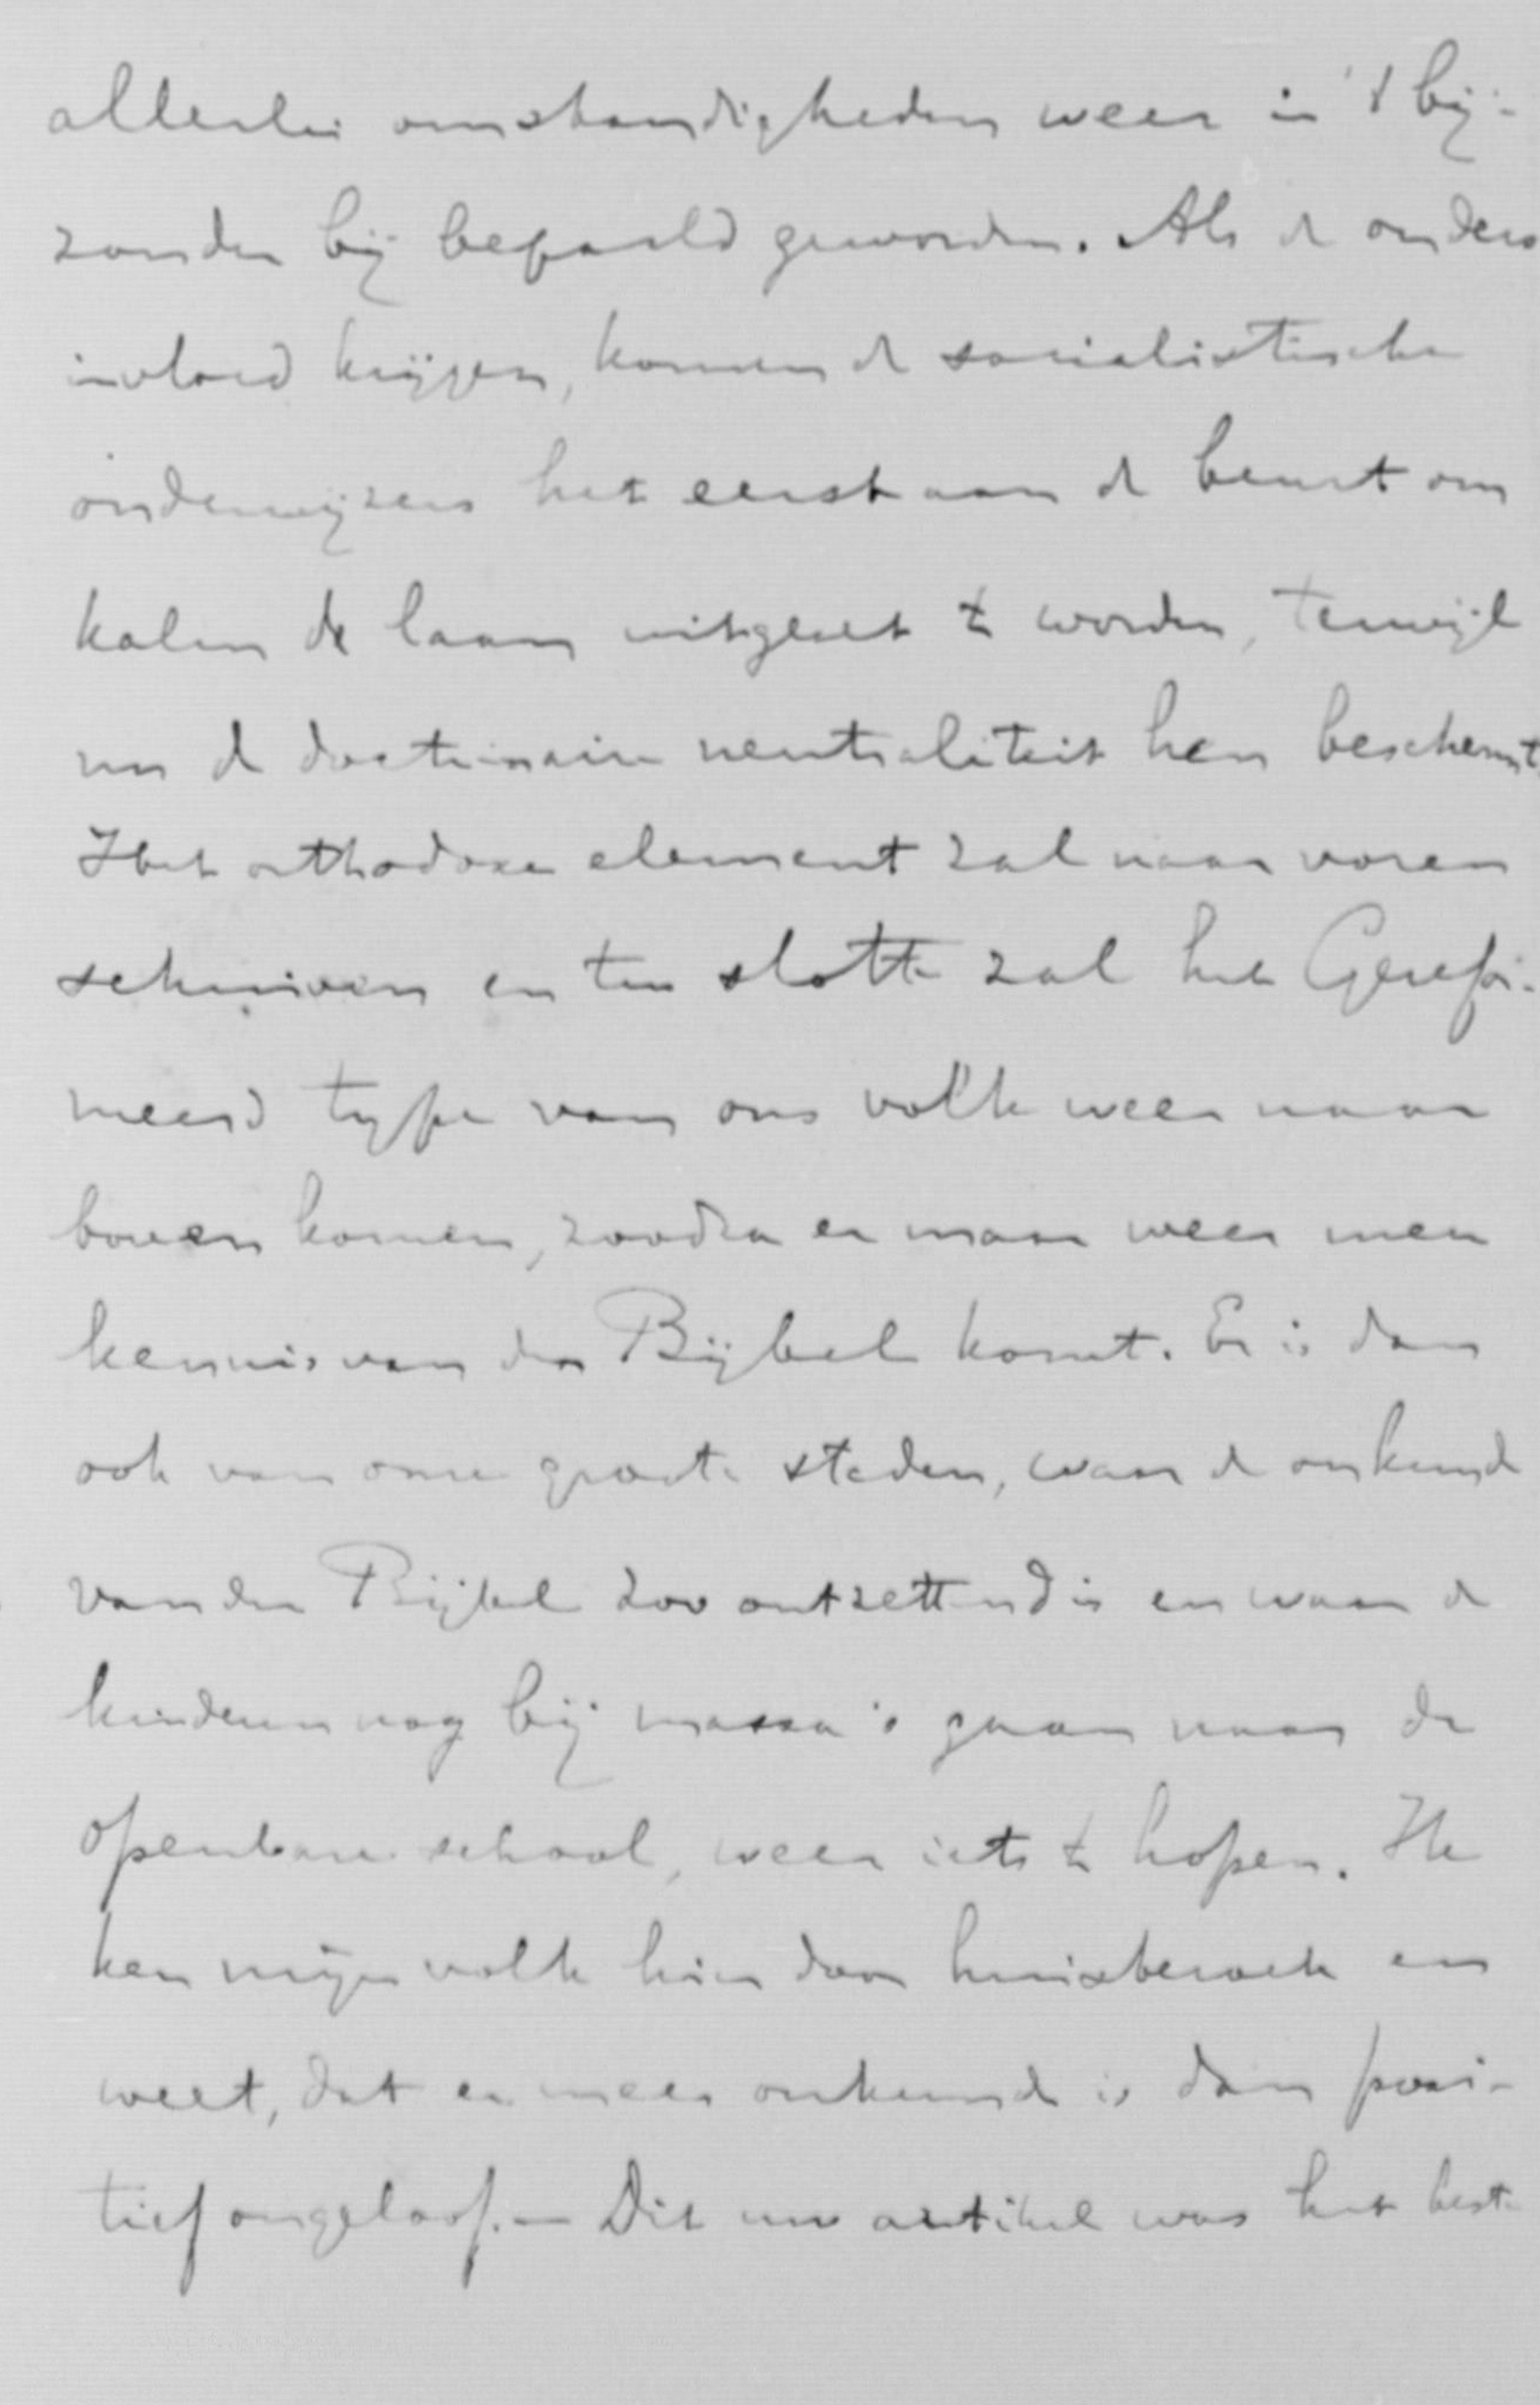 allerlei omstandigheden weer in 't bij-
zonder bij bepaald geworden. Als de ouders
invloed krijgen, komen de socialistische
onderwijzers het eerst aan de beurt om
de laan uitgezet te worden, terwijl
nu de doctrinaire neutraliteit hen beschermt
Het orthodoxe element zal naar voren
schuiven en ten slotte zal het Gerefor-
meerd type van ons volk weer naar
boven komen, zoodra er maar weer meer
kennis van den Bijbel komt. Er is dan
ook van onze groote steden, waar de onkunde
van den Bijbel zoo ontzettend is en waar de
kinderen nog bij massa's gaan naar de
openbare school, weer iets te hopen. Ik
ken mijn volk hier door huisbezoek en
weet, dat er meer onkunde is dan posi-
tief ongeloof. — Dit uw artikel was het beste